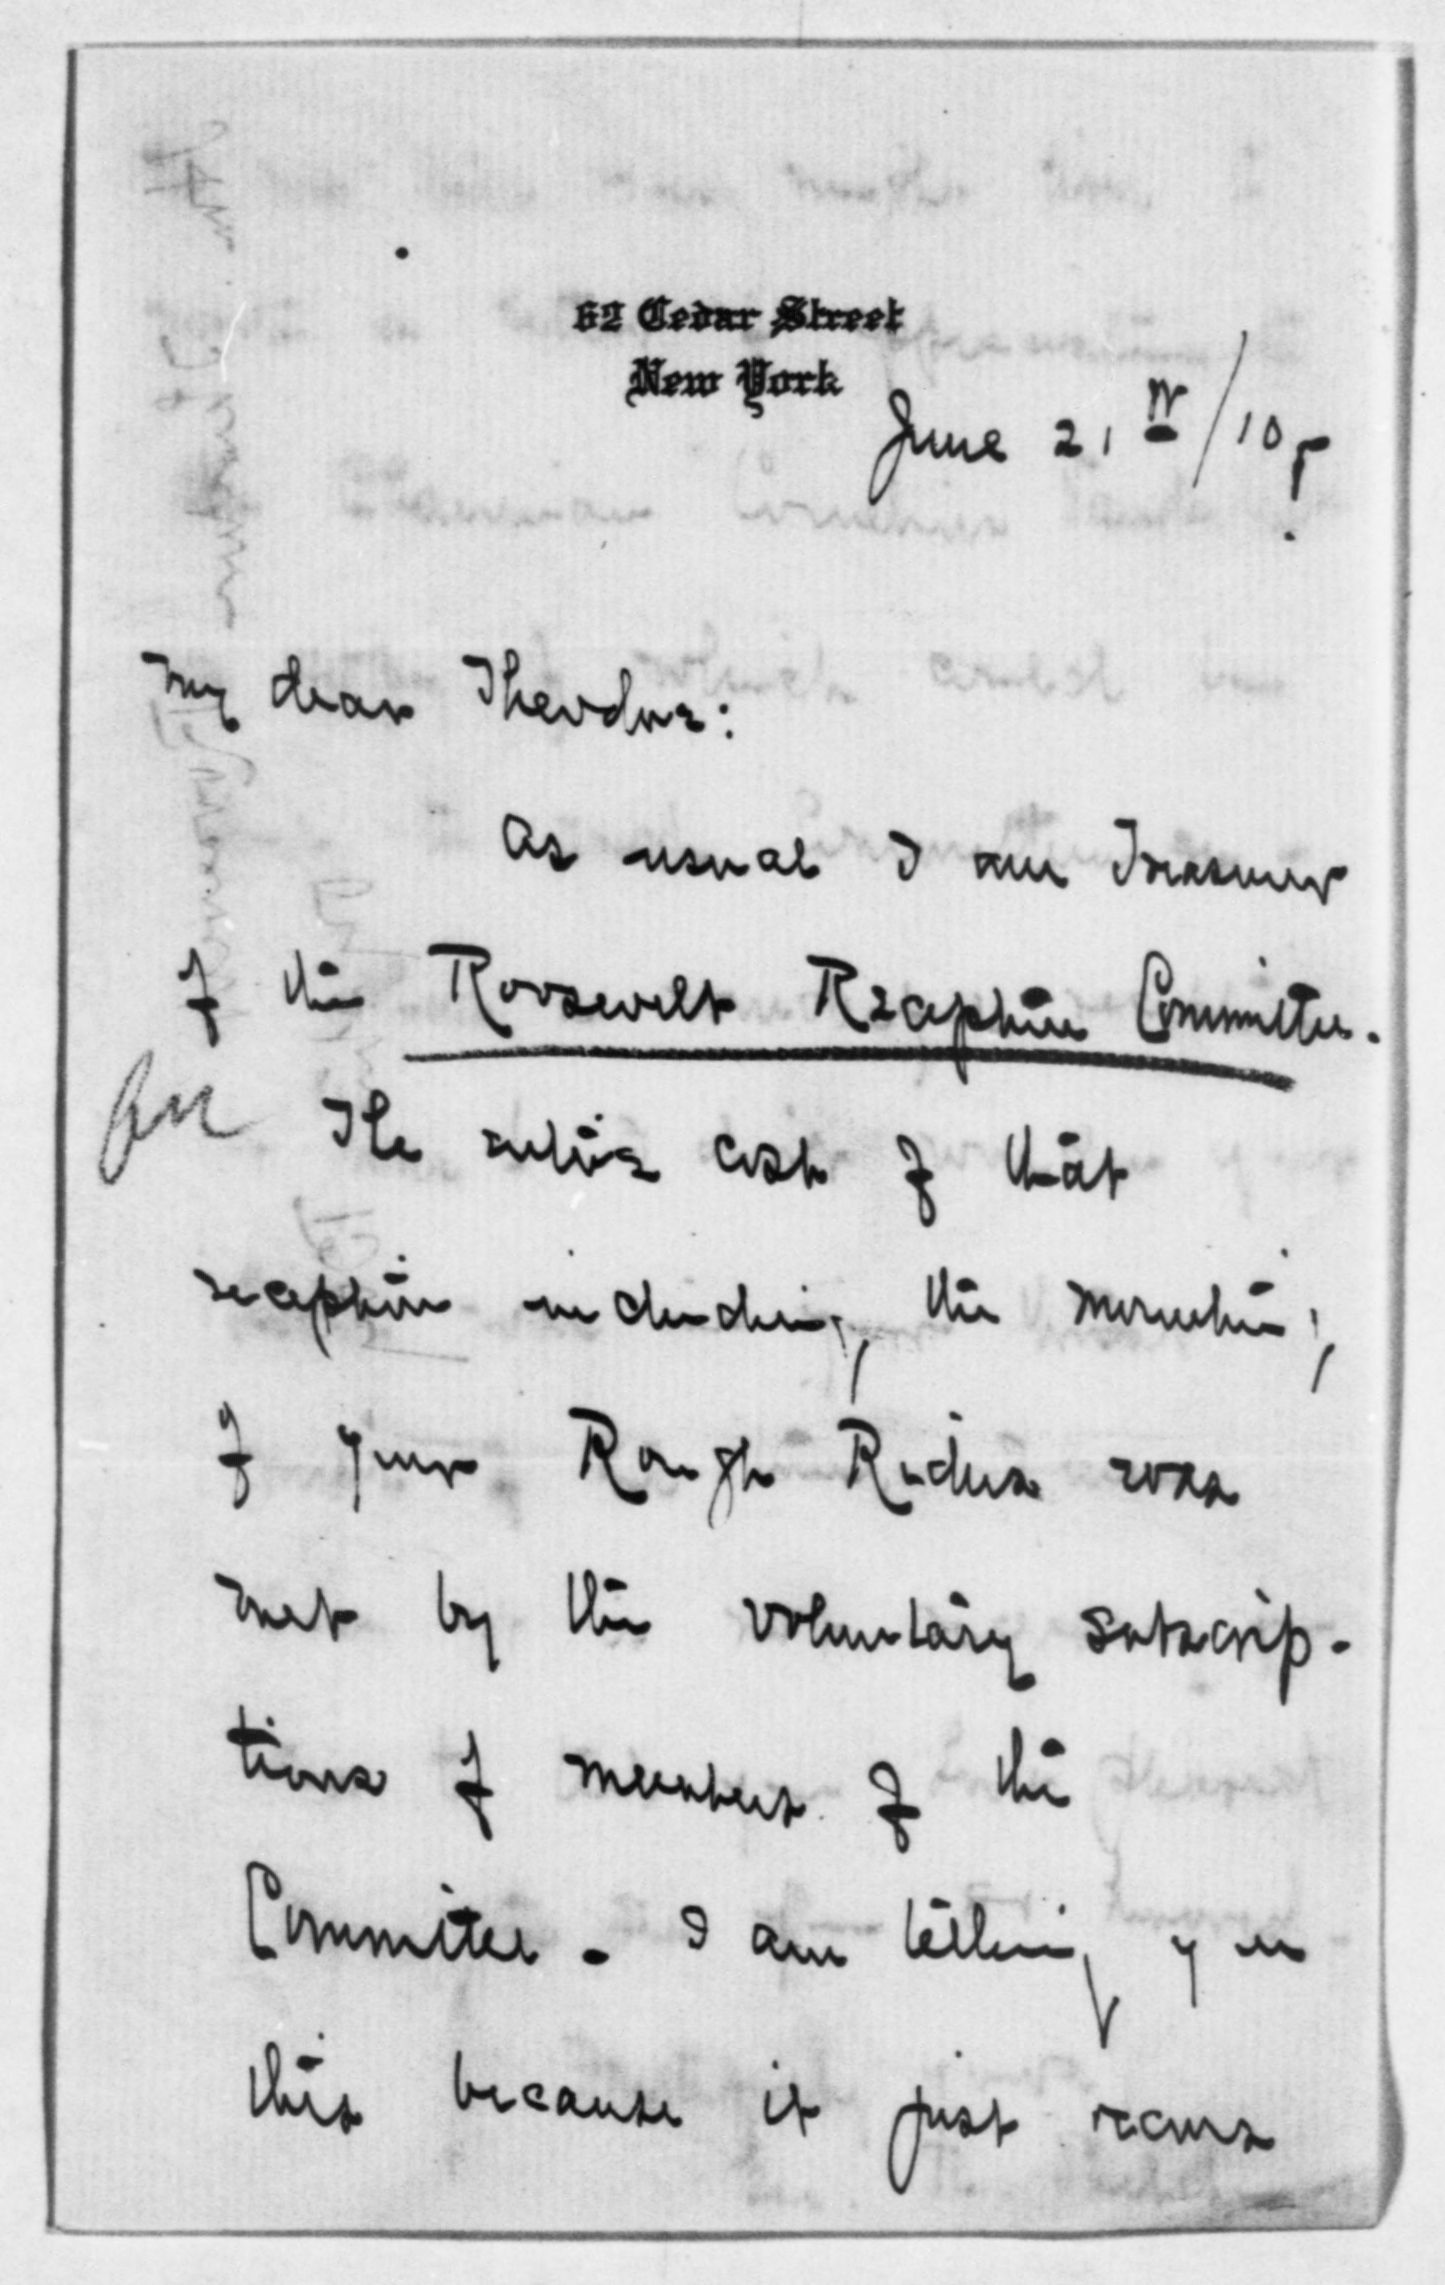 62 Cedar Street
New York
June 21st/10
My dear Theodore:
As usual I am Treasurer
of the Roosevelt Reception Committee.
The entire cost of that
reception including the mounting
of your Rough Riders was
met by the voluntary subscrip-
tions of members of the
Committee. I am telling you
this because it just occurs